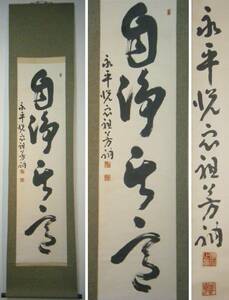 自浄其意
永平悦宗祖芳衲
自浄其意
永平悦宗祖芳衲
永平悦宗祖芳衲